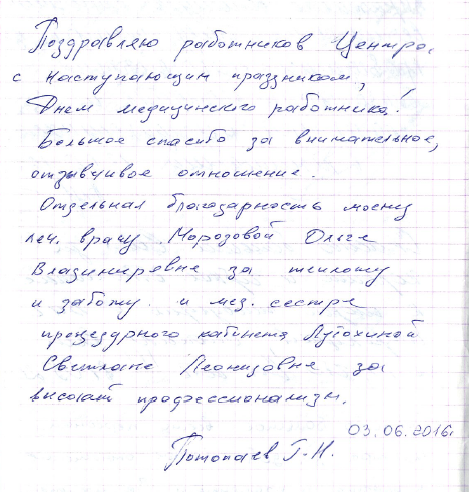 Поздравляю работников Центра,
с наступающим праздником,
Днем медицинского работника!
Большое спасибо за внимательное,
отзывчивое отношение.
Отдельная благодарность моему
леч. врачу Морозовой Ольге
Владимировне за теплоту
и заботу и мед. сестре
процедурного кабинета Лутохиной
Светлане Леонидовне за
высокий профессионализм.
03.06.2016г.
Потопаев Г.Н.